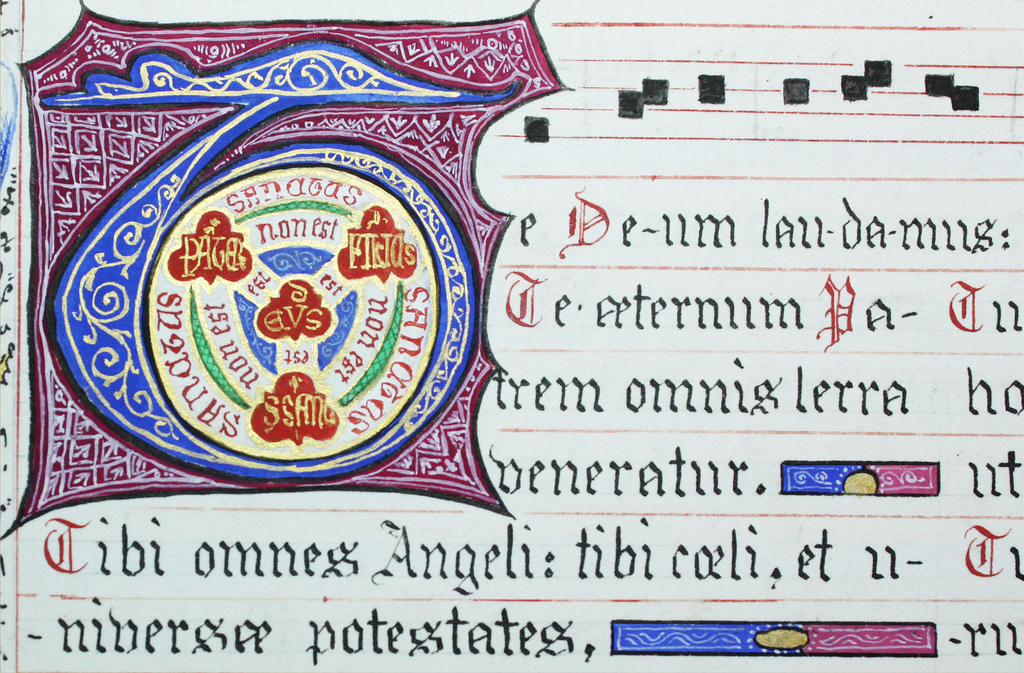 T
SANCTUS
SANCTUS
SANCTUS
PATER
non est
FILIUS
est
est
DEVS
non est
non est
est
S SANC
e De-um lau-da-mus:
Te· æternum Pa-
trem omnis terra
veneratur.
Tibi omnes Angeli: tibi cœli, et u-
-niversæ potestates,
Tu
ho
ut
Tu
-ru